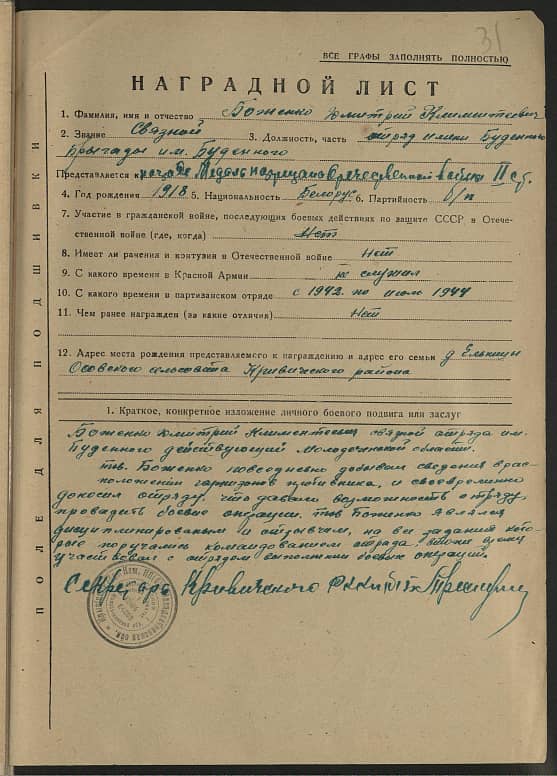 31
ВСЕ ГРАФЫ ЗАПОЛНЯТЬ ПОЛНОСТЬЮ
НАГРАДНОЙ ЛИСТ
1. Фамилия, имя и отчество Боженко Дмитрий Климентьевич
2. Звание Связной 3. Должность, часть отряд имени Буденного
бригады им. Буденного
Представляется к награде Медаль партизану отечественной войны II ст.
4. Год рождения 1918 5. Национальность Белорус 6. Партийность б/п
7. Участие в гражданской войне, последующих боевых действиях по защите СССР, в Отече-
ственной войне (где, когда) Нет
8. Имеет ли ранения и контузии в Отечественной войне Нет
9. С какого времени в Красной Армии не служил
10. С какого времени в партизанском отряде с 1942 по июль 1944
11. Чем ранее награжден (за какие отличия) Нет
12. Адрес места рождения представляемого к награждению и адрес его семьи д
Осовского сельсовета Кривичского района
1. Краткое, конкретное изложение личного боевого подвига или заслуг
Боженко Дмитрий Климентьевич связной отряда им.
Буденного действующий Молодечненской области.
тов. Боженко повседневно добывал сведения о рас-
положении гарнизонов противника, и своевременно
доносил отряду, что давало возможность отряду
проводить боевые операции. тов Боженко являлся
дисциплинированым и отзывчем, на все задания кото-
рые поручались командованием отряда.
участвовал с отрядом выполнении боевых операций.
Секретарь Кривичского РККП(б)Б
ПОЛЕ ДЛЯ ПОДШИВКИ